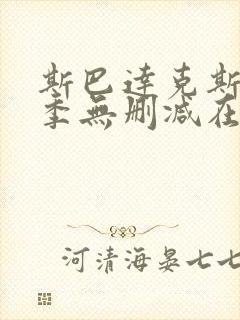 斯巴达克斯
季無删减在
河清海晏七七